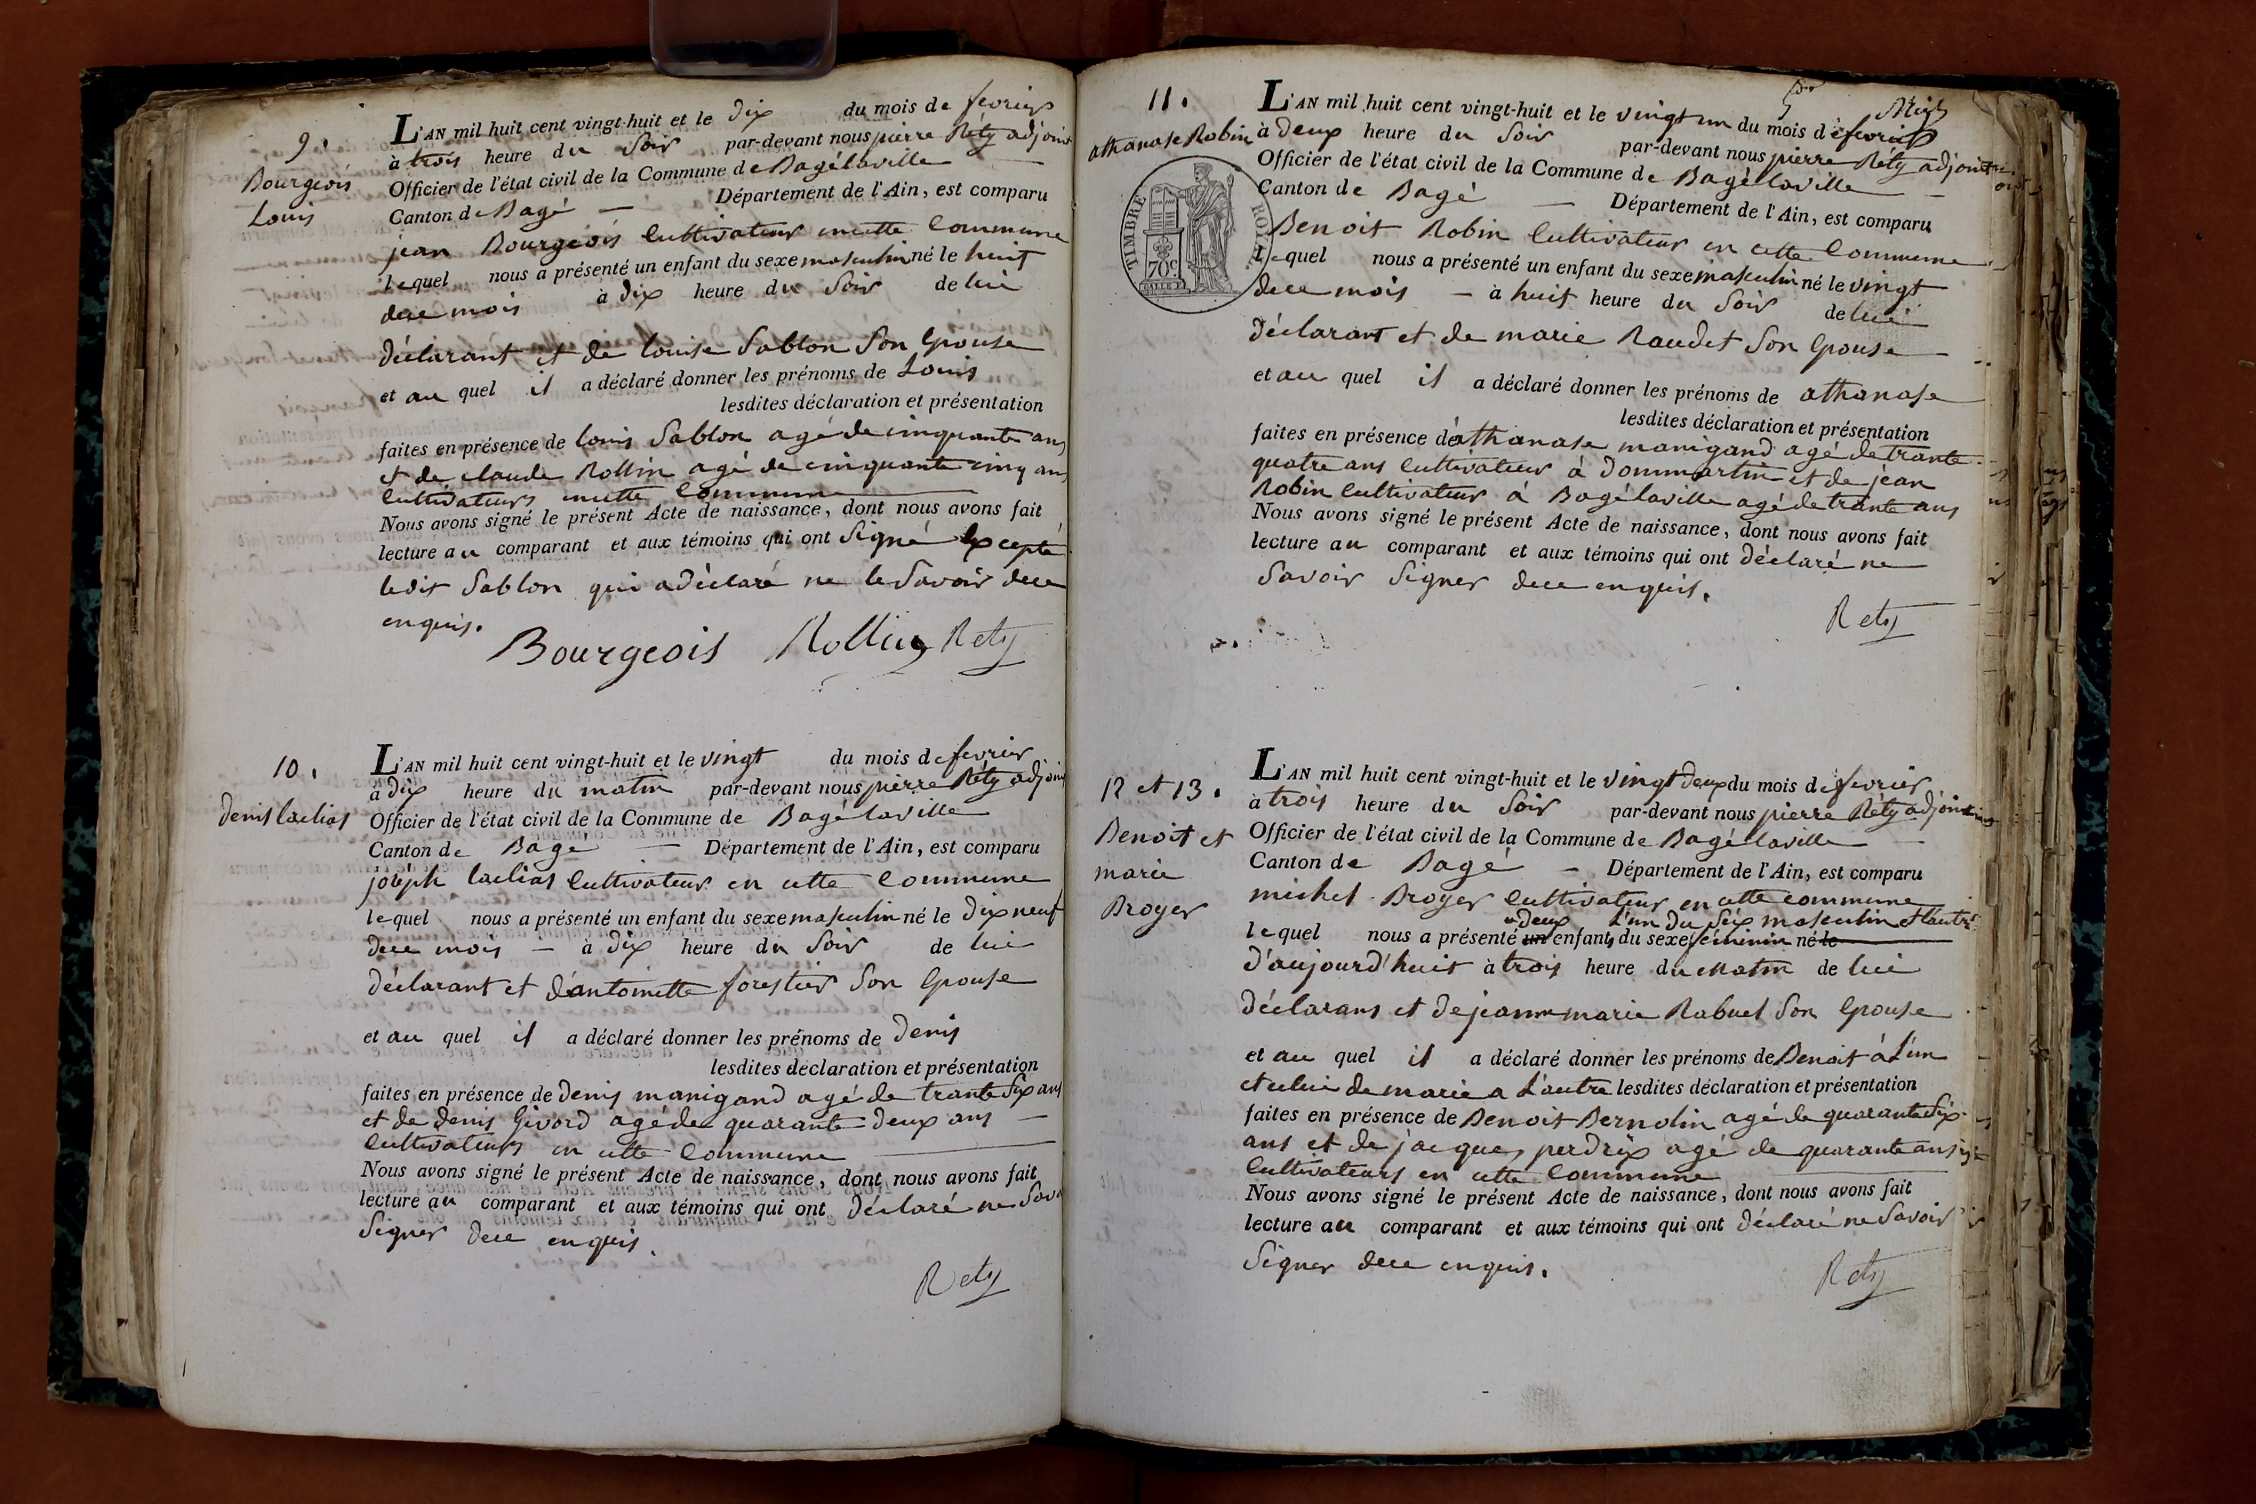 9.
Bourgeois
Louis
L'AN mil huit cent vingt-huit et le dix du mois de fevrier
à trois heure du soir par-devant nous pierre Réty adjoint
Officier de l'état civil de la Commune de Bagélaville
Canton de Bagé — Département de l'Ain, est comparu
jean Bourgeois Cultivateur encette Commune
lequel nous a présenté un enfant du sexe masculin né le huit
dece mois à dix heure du Soir de lui
déclarant et de louise Sablon Son Epouse
et au quel il a déclaré donner les prénoms de Louis
lesdites déclaration et présentation
faites en présence de louis Sablon agé de cinquante ans
et de claude Rollin agé de cinquante cinq ans
Cultivateurs encette Commune
Nous avons signé le présent Acte de naissance, dont nous avons fait
lecture au comparant et aux témoins qui ont Signé Excepté
ledit Sablon qui adéclaré ne le Savoir dece
enquis.
Bourgeois Rollin Rety
10.
denis laclias
L'AN mil huit cent vingt-huit et le vingt du mois de fevrier
à dix heure du matin par-devant nous pierre Réty adjoint
Officier de l'état civil de la Commune de Bagélaville
Canton de Bagé — Département de l'Ain, est comparu
joseph laclias Cultivateur en cette Commune
lequel nous a présenté un enfant du sexe masculin né le dixneuf
dece mois — à dix heure du Soir de lui
déclarant et d'antoinette forestier Son Epouse
et au quel il a déclaré donner les prénoms de denis
lesdites déclaration et présentation
faites en présence de denis manigand agé de trante Six ans
et de denis Givord agé de quarante deux ans —
Cultivateurs en cette Commune
Nous avons signé le présent Acte de naissance, dont nous avons fait
lecture au comparant et aux témoins qui ont déclaré ne Savo
Signer dece enquis.
Rety
11.
athanase Robin
TIMBRE ROYAL
70c
L'AN mil huit cent vingt-huit et le vingt un du mois de fevrier
à deux heure du Soir par-devant nous pierre Réty adjoint
Officier de l'état civil de la Commune de Bagélaville
Canton de Bagé — Département de l'Ain, est comparu
Benoit Robin Cultivateur en cette Commune
lequel nous a présenté un enfant du sexe masculin né le vingt
dece mois — à huit heure du Soir de lui
déclarant et de marie Raudet Son Epouse
et au quel il a déclaré donner les prénoms de athanase
lesdites déclaration et présentation
faites en présence d'athanase manigand agé de trante
quatre ans Cultivateur à dommartin et de jéan
Robin Cultivateur à Bagélaville agé de trante ans
Nous avons signé le présent Acte de naissance, dont nous avons fait
lecture au comparant et aux témoins qui ont déclaré ne
Savoir Signer dece enquis.
Rety
12 et 13.
Benoit et
marie
Broyer
L'AN mil huit cent vingt-huit et le vingt deux du mois de fevrier
à trois heure du Soir par-devant nous pierre Réty adjoint
Officier de l'état civil de la Commune de Bagélaville
Canton de Bagé — Département de l'Ain, est comparu
michel Broyer Cultivateur en cette commune
deux L'un du Séx masculin et l'autre
lequel nous a présenté un enfants du sexe féminin né le
d'aujourd'huit à trois heure du Matin de lui
déclarans et de jeanne marie Rabuel Son Epouse
et au quel il a déclaré donner les prénoms de Benoit à L'un
et celui de marie a L'autre lesdites déclaration et présentation
faites en présence de Benoit Bernolin agé de quarante Six
ans et de jacques perdrix agé de quarante ans
Cultivateurs en cette Commune
Nous avons signé le présent Acte de naissance, dont nous avons fait
lecture au comparant et aux témoins qui ont déclaré ne Savoir
Signer dece enquis.
Rety